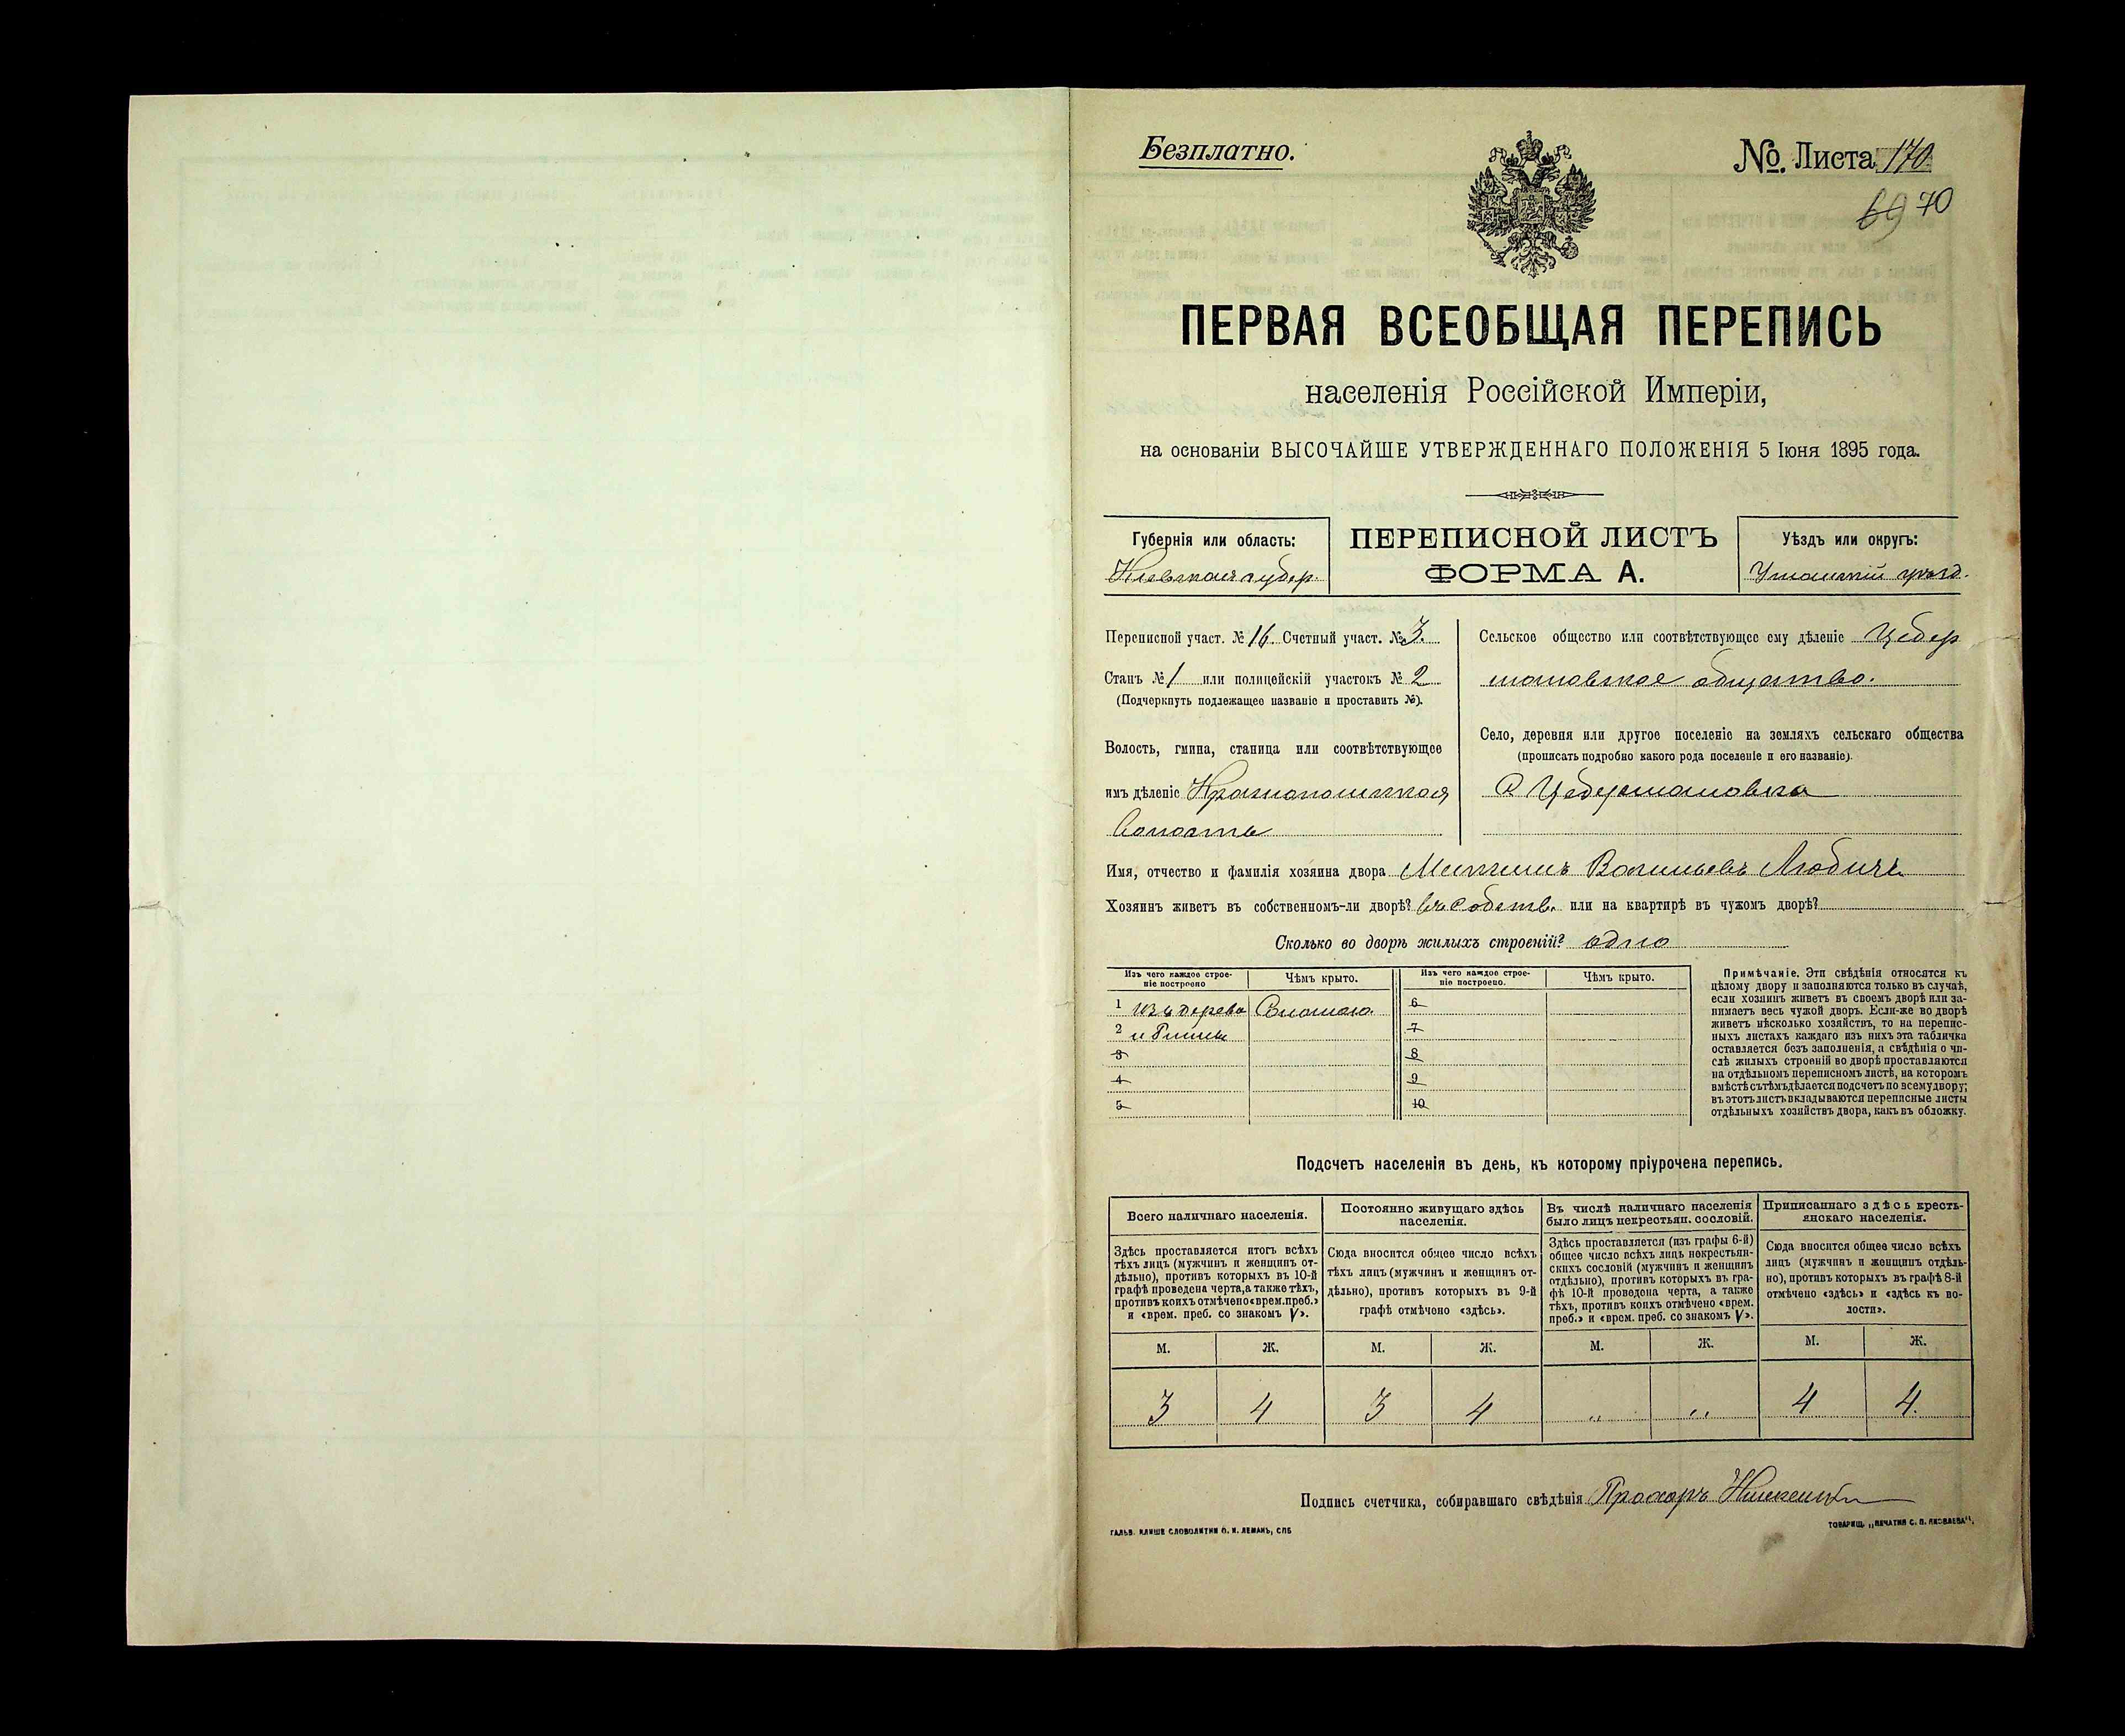 Безплатно.
№. Листа 170
69 70
ПЕРВАЯ ВСЕОБЩАЯ ПЕРЕПИСЬ
населенія Россійской Имперіи,
на основаніи ВЫСОЧАЙШЕ УТВЕРЖДЕННАГО ПОЛОЖЕНІЯ 5 Іюня 1895 года.
Губернія или область:
Кіевская губер.
ПЕРЕПИСНОЙ ЛИСТЪ
ФОРМА А.
Уѣздъ или округъ:
Уманскій уѣзд.
Переписной участ. № 16. Счетный участ. № 3.
Станъ № 1 или полицейскій участокъ № 2
(Подчеркнуть подлежащее названіе и проставить №).
Волость, гмина, станица или соотвѣтствующее
имъ дѣленіе Краснопольская
Волость
Сельское общество или соотвѣтствующее ему дѣленіе Цебер
мановское общество.
Село, деревня или другое поселеніе на земляхъ сельскаго общества
(прописать подробно какого рода поселеніе и его названіе).
с Цебермановка
Имя, отчество и фамилія хозяина двора Васильевъ
Хозяинъ живетъ въ собственномъ-ли дворѣ? въ собств. или на квартирѣ въ чужомъ дворѣ?
Сколько во дворѣ жилыхъ строеній? одно
Изъ чего каждое строе-
ніе построено
Чѣмъ крыто.
Изъ чего каждое строе-
ніе построено.
Чѣмъ крыто.
1 изъ дерева Соломою. 6
2 и Глины 7
3 8
4 9
5 10
Примѣчаніе. Эти свѣдѣнія относятся къ
цѣлому двору и заполняются только въ случаѣ,
если хозяинъ живетъ въ своемъ дворѣ или за-
нимаетъ весь чужой дворъ. Если-же во дворѣ
живетъ нѣсколько хозяйствъ, то на перепис-
ныхъ листахъ каждаго изъ нихъ эта табличка
оставляется безъ заполненія, а свѣдѣнія о чи-
слѣ жилыхъ строеній во дворѣ проставляются
на отдѣльномъ переписномъ листѣ, на которомъ
вмѣстѣ съ тѣмъ дѣлается подсчетъ по всему двору;
въ этотъ листъ вкладываются переписные листы
отдѣльныхъ хозяйствъ двора, какъ въ обложку.
Подсчетъ населенія въ день, къ которому пріурочена перепись.
Всего наличнаго населенія.
Здѣсь проставляется итогъ всѣхъ
тѣхъ лицъ (мужчинъ и женщинъ от-
дѣльно), противъ которыхъ въ 10-й
графѣ проведена черта, а также тѣхъ,
противъ коихъ отмѣчено «врем. преб.»
и «врем. преб. со знакомъ V».
Постоянно живущаго здѣсь
населенія.
Сюда вносится общее число всѣхъ
тѣхъ лицъ (мужчинъ и женщинъ от-
дѣльно), противъ которыхъ въ 9-й
графѣ отмѣчено «здѣсь».
Въ числѣ наличнаго населенія
было лицъ некрестьян. сословій.
Здѣсь проставляется (изъ графы 6-й)
общее число всѣхъ лицъ некрестьян-
скихъ сословій (мужчинъ и женщинъ
отдѣльно), противъ которыхъ въ гра-
фѣ 10-й проведена черта, а также
тѣхъ, противъ коихъ отмѣчено «врем.
преб.» и «врем. преб. со знакомъ V».
Приписаннаго здѣсь кресть-
янскаго населенія.
Сюда вносится общее число всѣхъ
лицъ (мужчинъ и женщинъ отдѣль-
но), противъ которыхъ въ графѣ 8-й
отмѣчено «здѣсь» и «здѣсь къ во-
лости».
М. Ж. М. Ж. М. Ж. М. Ж.
3 4 3 4 „ „ 4 4.
Подпись счетчика, собиравшаго свѣдѣнія Прохоръ
ГАЛЬВ. КЛИШЕ СЛОВОЛИТНИ О. И. ЛЕМАНЪ, СПБ
ТОВАРИЩ. „ПЕЧАТНЯ С. П. ЯКОВЛЕВА“.